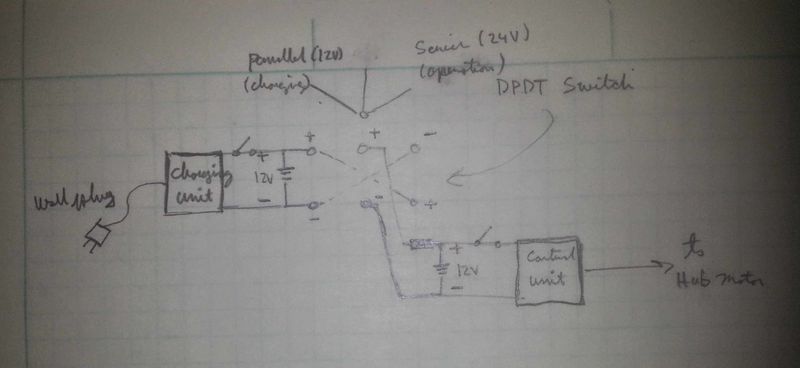 Parallel (12V)
(charging)
Series (24V)
(operation)
DPDT Switch
+ + -
charging
unit
+
12V
-
wall plug
- - +
+
12V
-
Control
unit
to
Hub motor